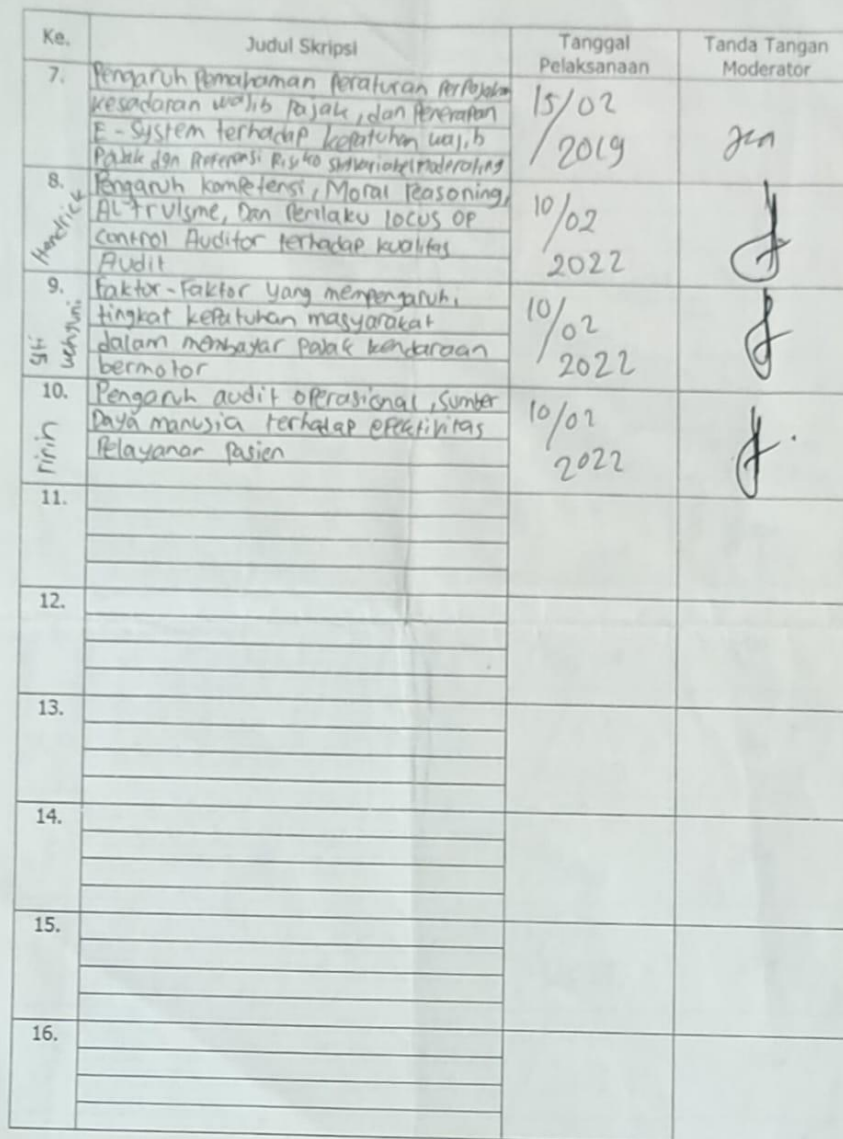 Ke. Judul Skripsi Tanggal Pelaksanaan Tanda Tangan Moderator
7. Pengaruh Pemahaman Peraturan Perpajakan
kesadaran wajib pajak, dan Penerapan
E-System terhadap kepatuhan wajib
Pajak dgn Preferensi Risiko sbg variabel Moderating
15/02
2019
8. Hendrick
Pengaruh kompetensi, Moral reasoning,
ALtruisme, Dan Perilaku locus OP
control Auditor terhadap kualitas
Audit
10/02
2022
9. Siti
Faktor-Faktor yang mempengaruhi
tingkat kepatuhan masyarakat
dalam membayar pajak kendaraan
bermotor
10/02
2022
10. ririn
Pengaruh audit operasional, sumber
Daya manusia terhadap efektivitas
Pelayanan Pasien
10/02
2022
11.
12.
13.
14.
15.
16.